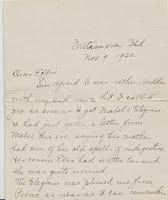 Metamora Ill.
Nov 9, 1920.
Dear Effie:
I'm afraid I was rather sudden
with my bad news but I called
you as soon as I got Mabel's telegram.
I had just gotten a letter from
Mabel this a.m. saying her mother
had one of her old spells of indigestion.
Her cousin had written her and
she was quite worried.
The telegram was phoned me from
Peoria as near as I can remember